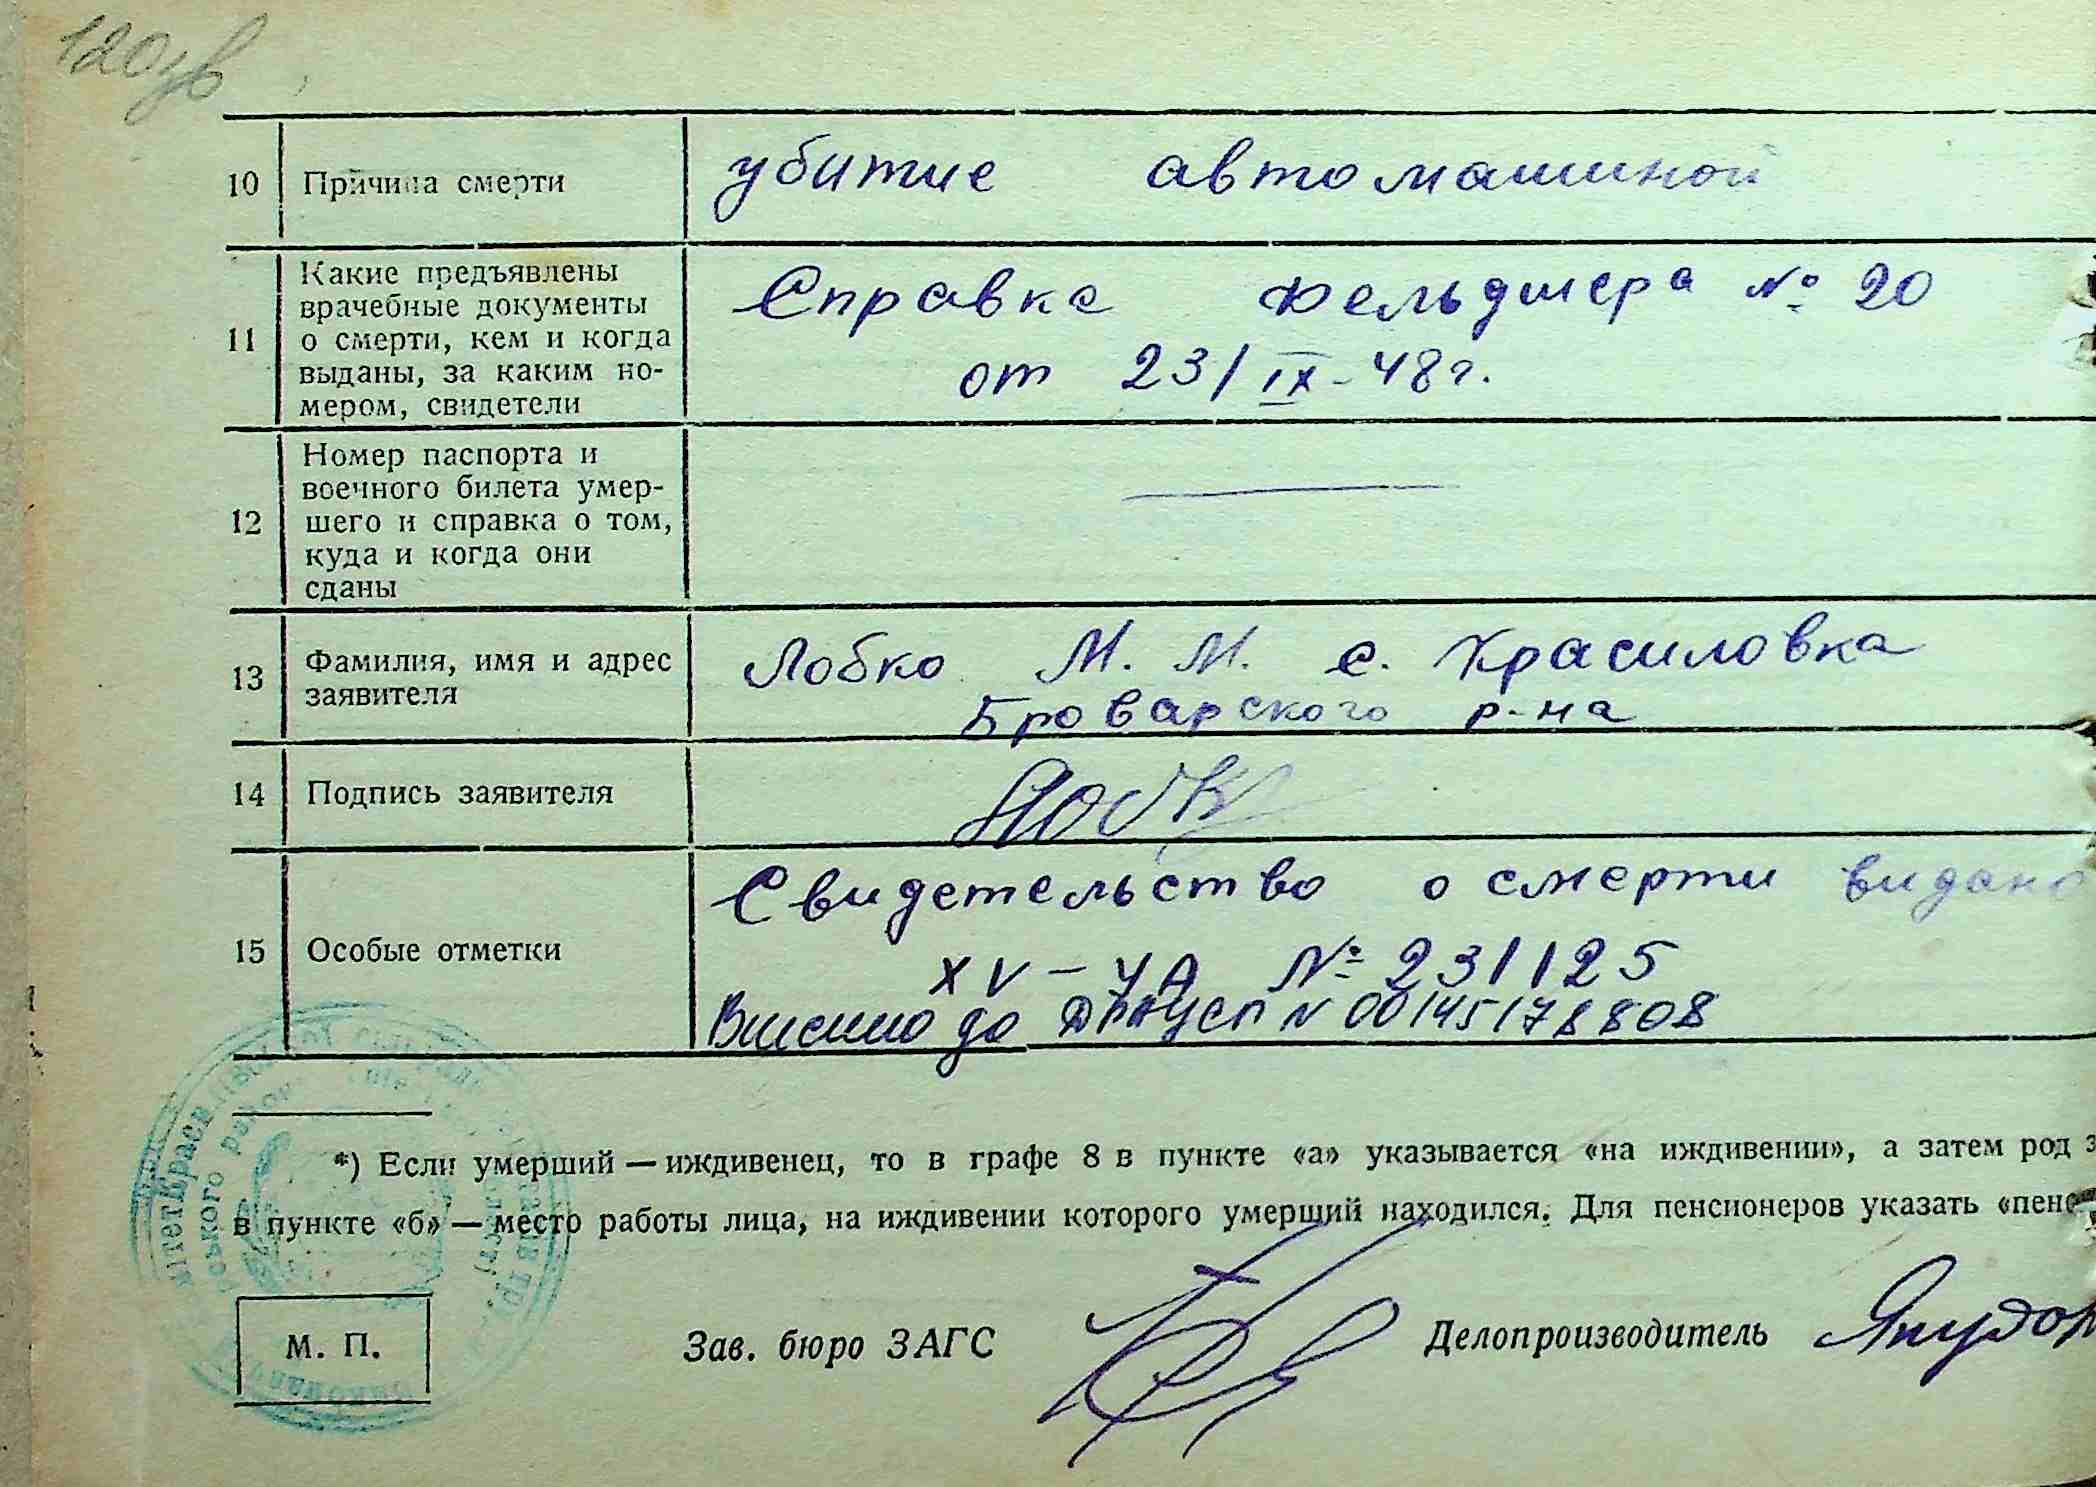 120 зв
10 Причина смерти убитие автомашиной
11 Какие предъявлены
врачебные документы
о смерти, кем и когда
выданы, за каким но-
мером, свидетели
Справка фельдшера № 20
от 23/IX-48г.
12 Номер паспорта и
военного билета умер-
шего и справка о том,
куда и когда они
сданы
—
13 Фамилия, имя и адрес
заявителя
Лобко М. М. с. Красиловка
Броварского р-на
14 Подпись заявителя
15 Особые отметки
Свидетельство о смерти видано
XV-УА № 231125
Внесено до ДРАЦСГ N 00145178808
*) Если умерший — иждивенец, то в графе 8 в пункте «а» указывается «на иждивении», а затем род
в пункте «б» — место работы лица, на иждивении которого умерший находился. Для пенсионеров указать «пенс
М. П. Зав. бюро ЗАГС Делопроизводитель